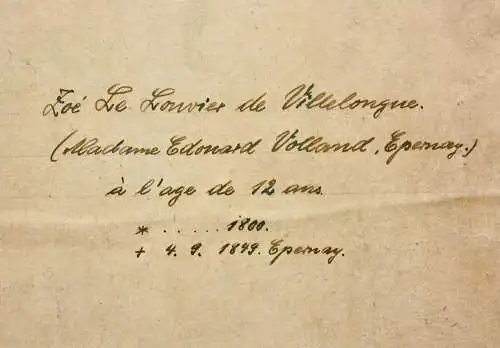 Zoé Le Louvier de Villelongue.
(Madame Edouard Volland, Epernay.)
à l'age de 12 ans
* ..... 1800.
+ 4. 9. 1849. Epernay.